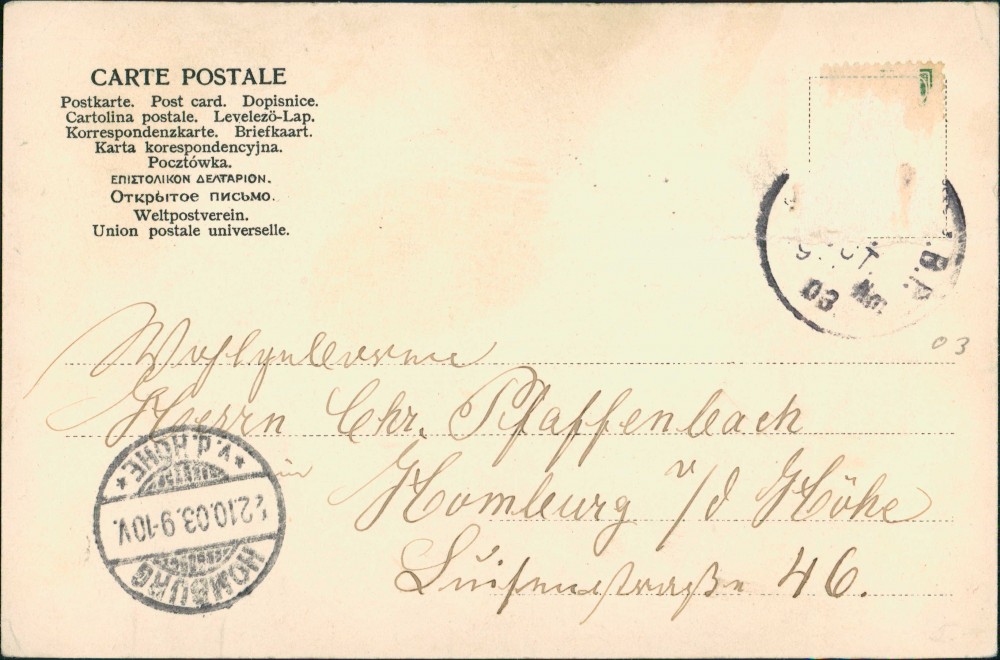 CARTE POSTALE
Postkarte. Post card. Dopisnice.
Cartolina postale. Levelezö-Lap.
Korrespondenzkarte. Briefkaart.
Karta korespondencyjna.
Pocztówka.
ΕΠΙΣΤΟΛΙΚΟΝ ΔΕΛΤΑΡΙΟΝ.
Открытое письмо.
Weltpostverein.
Union postale universelle.
B.P.
03
03
Wohlgeboren
Herrn Chr. Pfaffenbach
in Homburg v/d Höhe
Luisenstraße 46.
HOMBURG
2.10.03.9-10V.
* v.d.HÖHE *